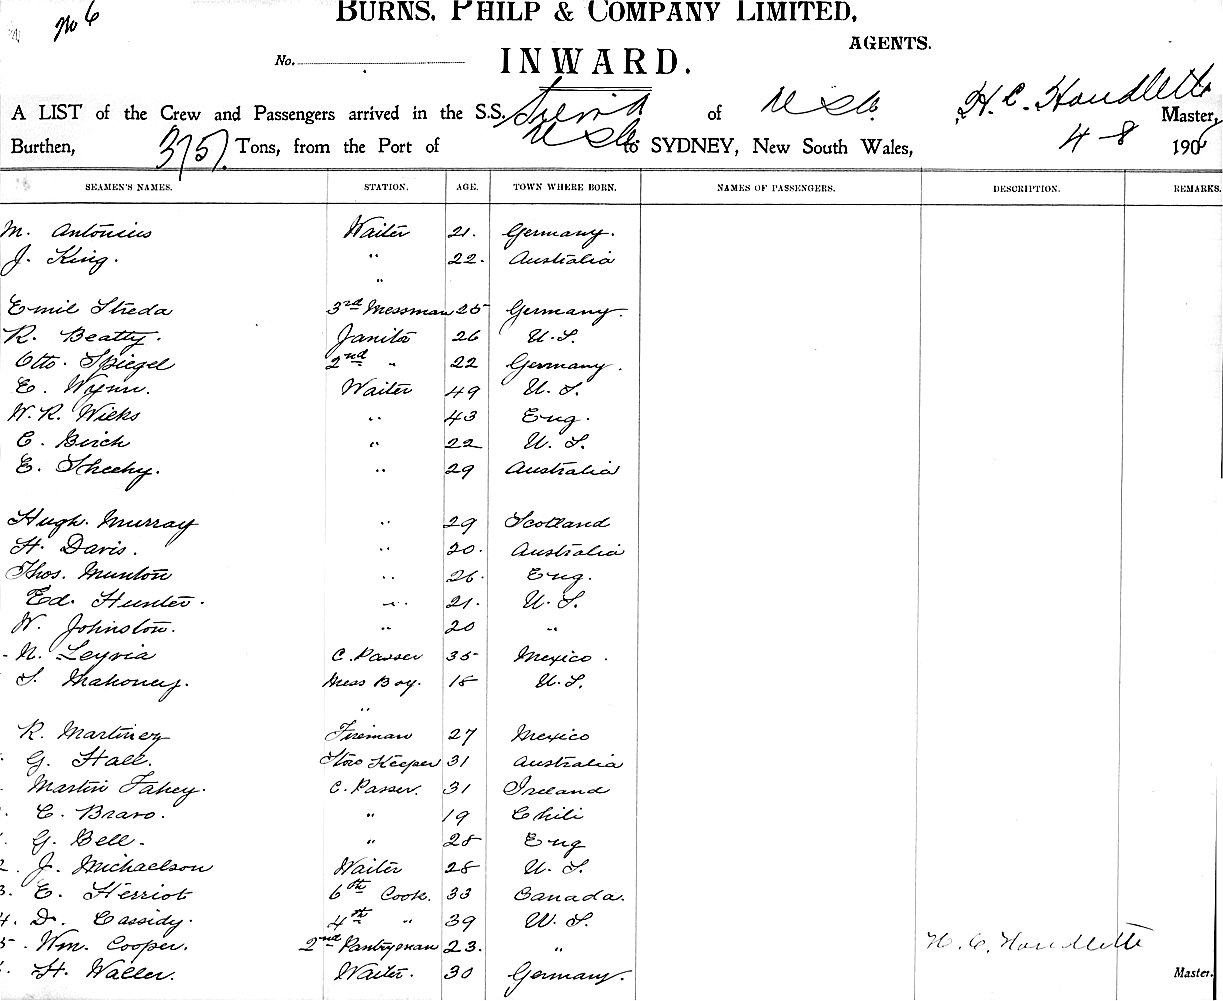 No 6
BURNS, PHILP & COMPANY LIMITED,
AGENTS.
No.
INWARD.
A LIST of the Crew and Passengers arrived in the S.S. of H. C. Houdlette Master,
Burthen, Tons, from the Port of to SYDNEY, New South Wales, 4-8 190
SEAMEN'S NAMES. STATION. AGE. TOWN WHERE BORN. NAMES OF PASSENGERS. DESCRIPTION. REMARKS.
M. Antonius Waiter 21. Germany.
J. King. " 22. Australia
"
Emil Streda 3rd Messman 25 Germany.
R. Beatty. Janitor 26 U.S.
Otto Spiegel 2nd " 22 Germany.
E. Wynn. Waiter 49 U.S.
W. R. Wicks " 43 Eng.
C. Birch " 22 U.S.
E. Sheehy. " 29 Australia
Hugh Murray " 29 Scotland
H. Davis. " 20. Australia
Thos. Munton " 26. Eng.
Ed. Hunter. " 21. U.S.
W. Johnston. " 20 "
N. Leyvia C. Passer 35 Mexico.
S. Mahoney. Mess Boy. 18 U.S.
"
R. Martinez Fireman 27 Mexico
G. Hall. Store Keeper 31 Australia
Martin Fahey. C. Passer. 31 Ireland
C. Bravo. " 19 Chili
G. Bell. " 28 Eng
J. Michaelson Waiter 28 U.S.
3. E. Herriot 6th Cook. 33 Canada.
4. D. Cassidy. 4th " 39 U.S.
5 Wm. Cooper. 2nd Pantryman 23. " H. C. Houdlette
H. Waller. Waiter. 30 Germany. Master.